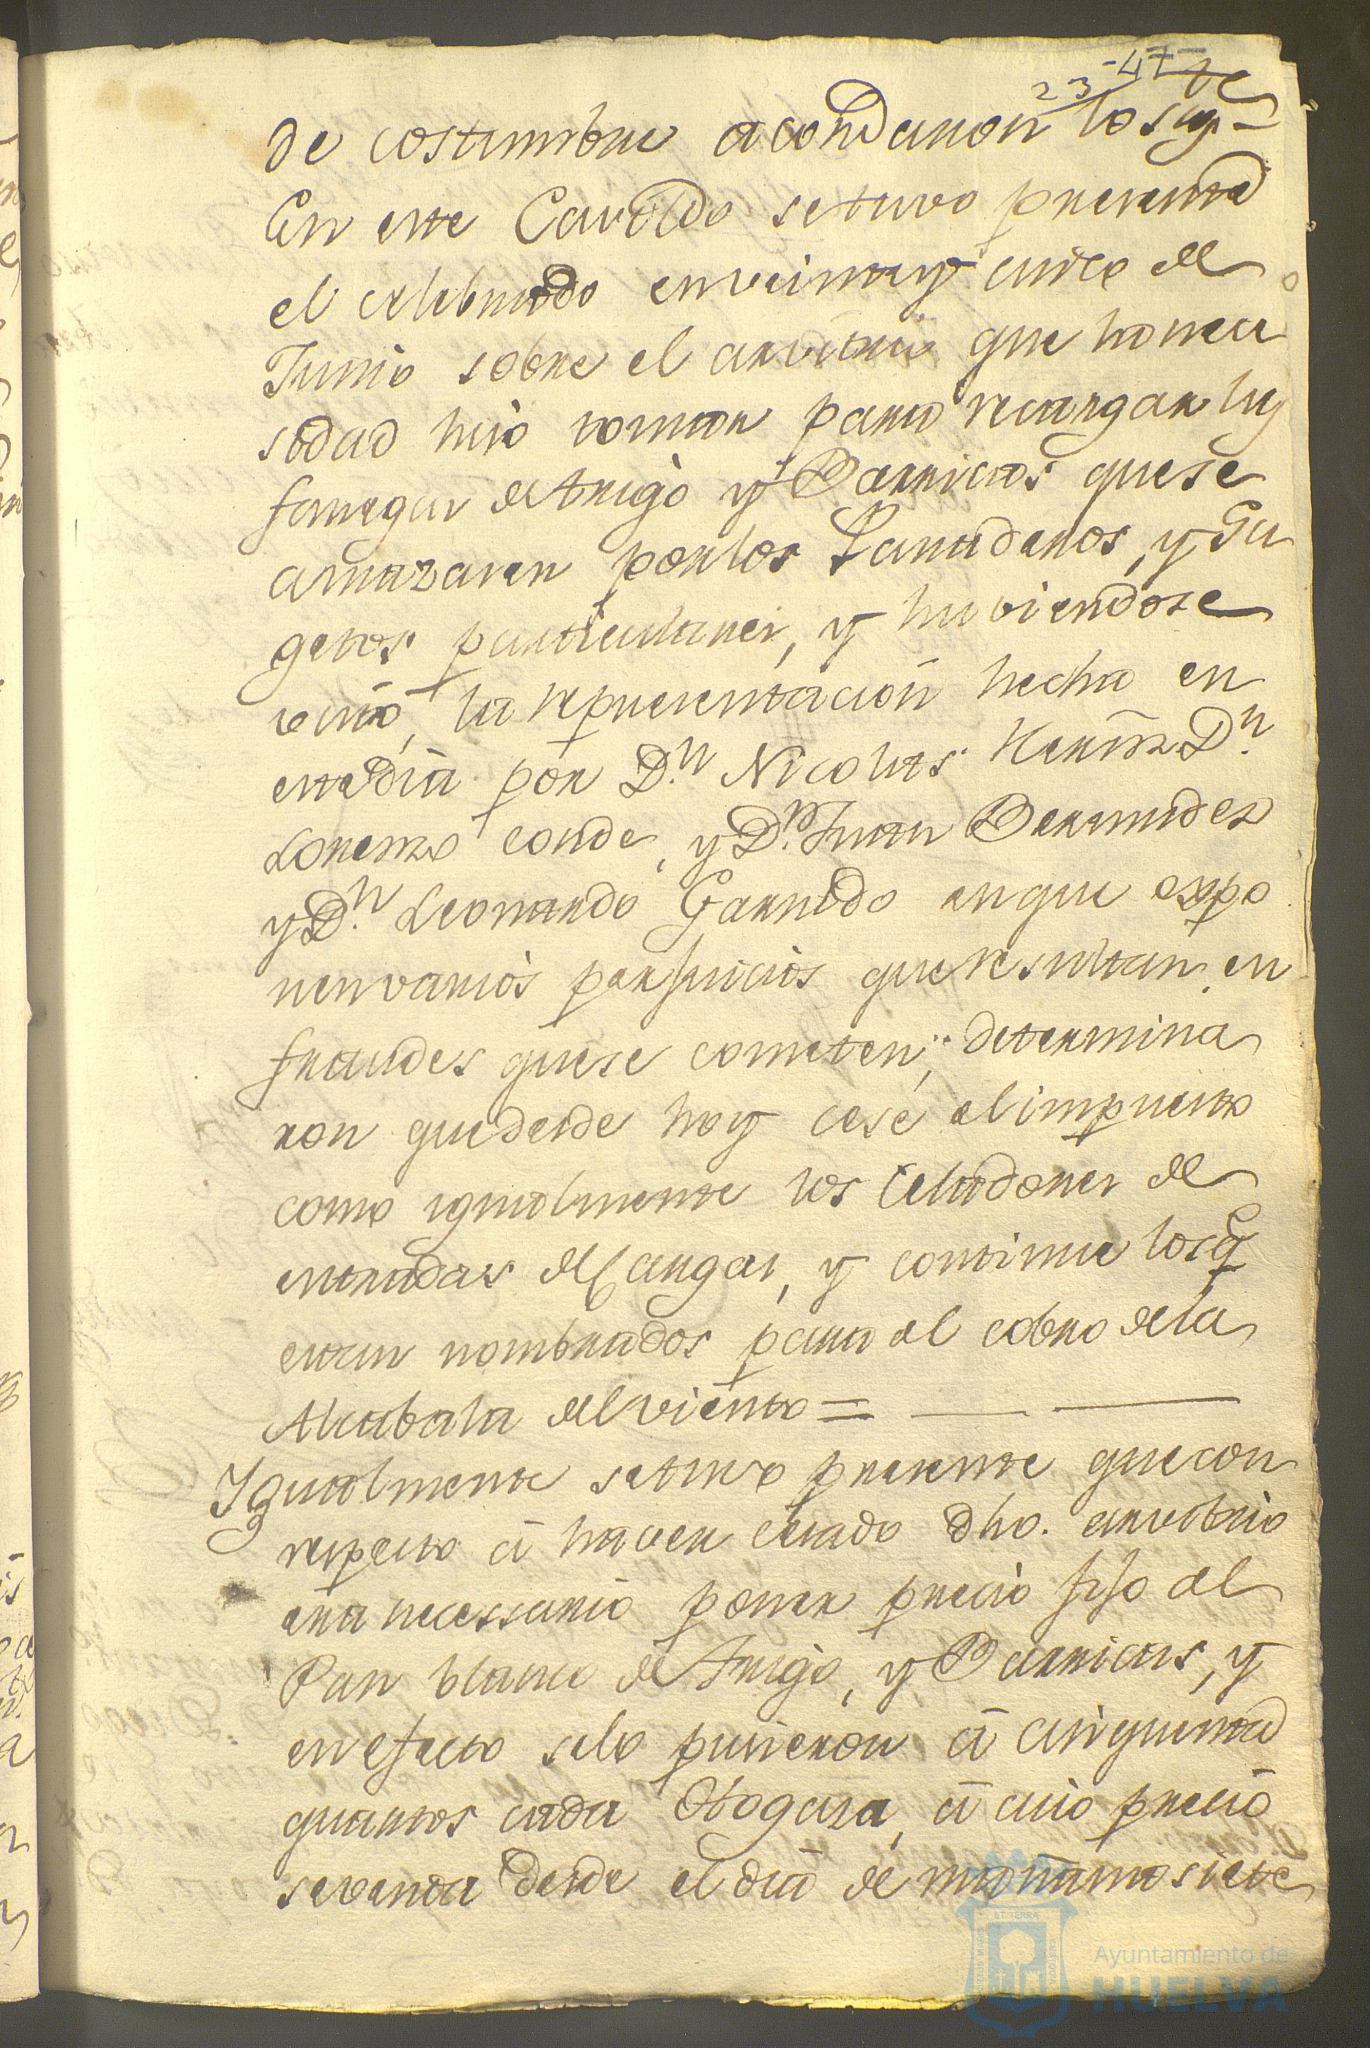 23-47
de costumbre acordaron lo sig.te
En este Cavildo se tuvo presente
el celebrado en veinte y cinco de
Junio sobre el arvitrio que la nece
sidad hizo tomar para recargar las
fanegas de trigo y Barricas que se
amazaren por los Panaderos, y Su
getos particulares, y haviendose
visto la representacion hecha en
este dia por D.n Nicolas Hernz. D.n
Lorenzo Conde, y D.n Juan Bermudez
y D.n Leonardo Garrido en que expo
nen varios perjuicios que resultan en
fraudes que se cometen, determina
ron que desde hoy cese el impuesto
como igualmente los Celadores de
entradas de Cargas, y continue los q
estan nombrados para el cobro de la
Alcabala del viento =
Igualmente se tuvo presente que con
respecto á haver cesado dho. arvitrio
era necessario poner precio fijo al
Pan blanco de trigo, y Barricas, y
en efecto se lo pusieron á cinquenta
quartos cada Otogasa, á cuio precio
se venda desde el dia de mañana siete
Ayuntamiento de
HUELVA